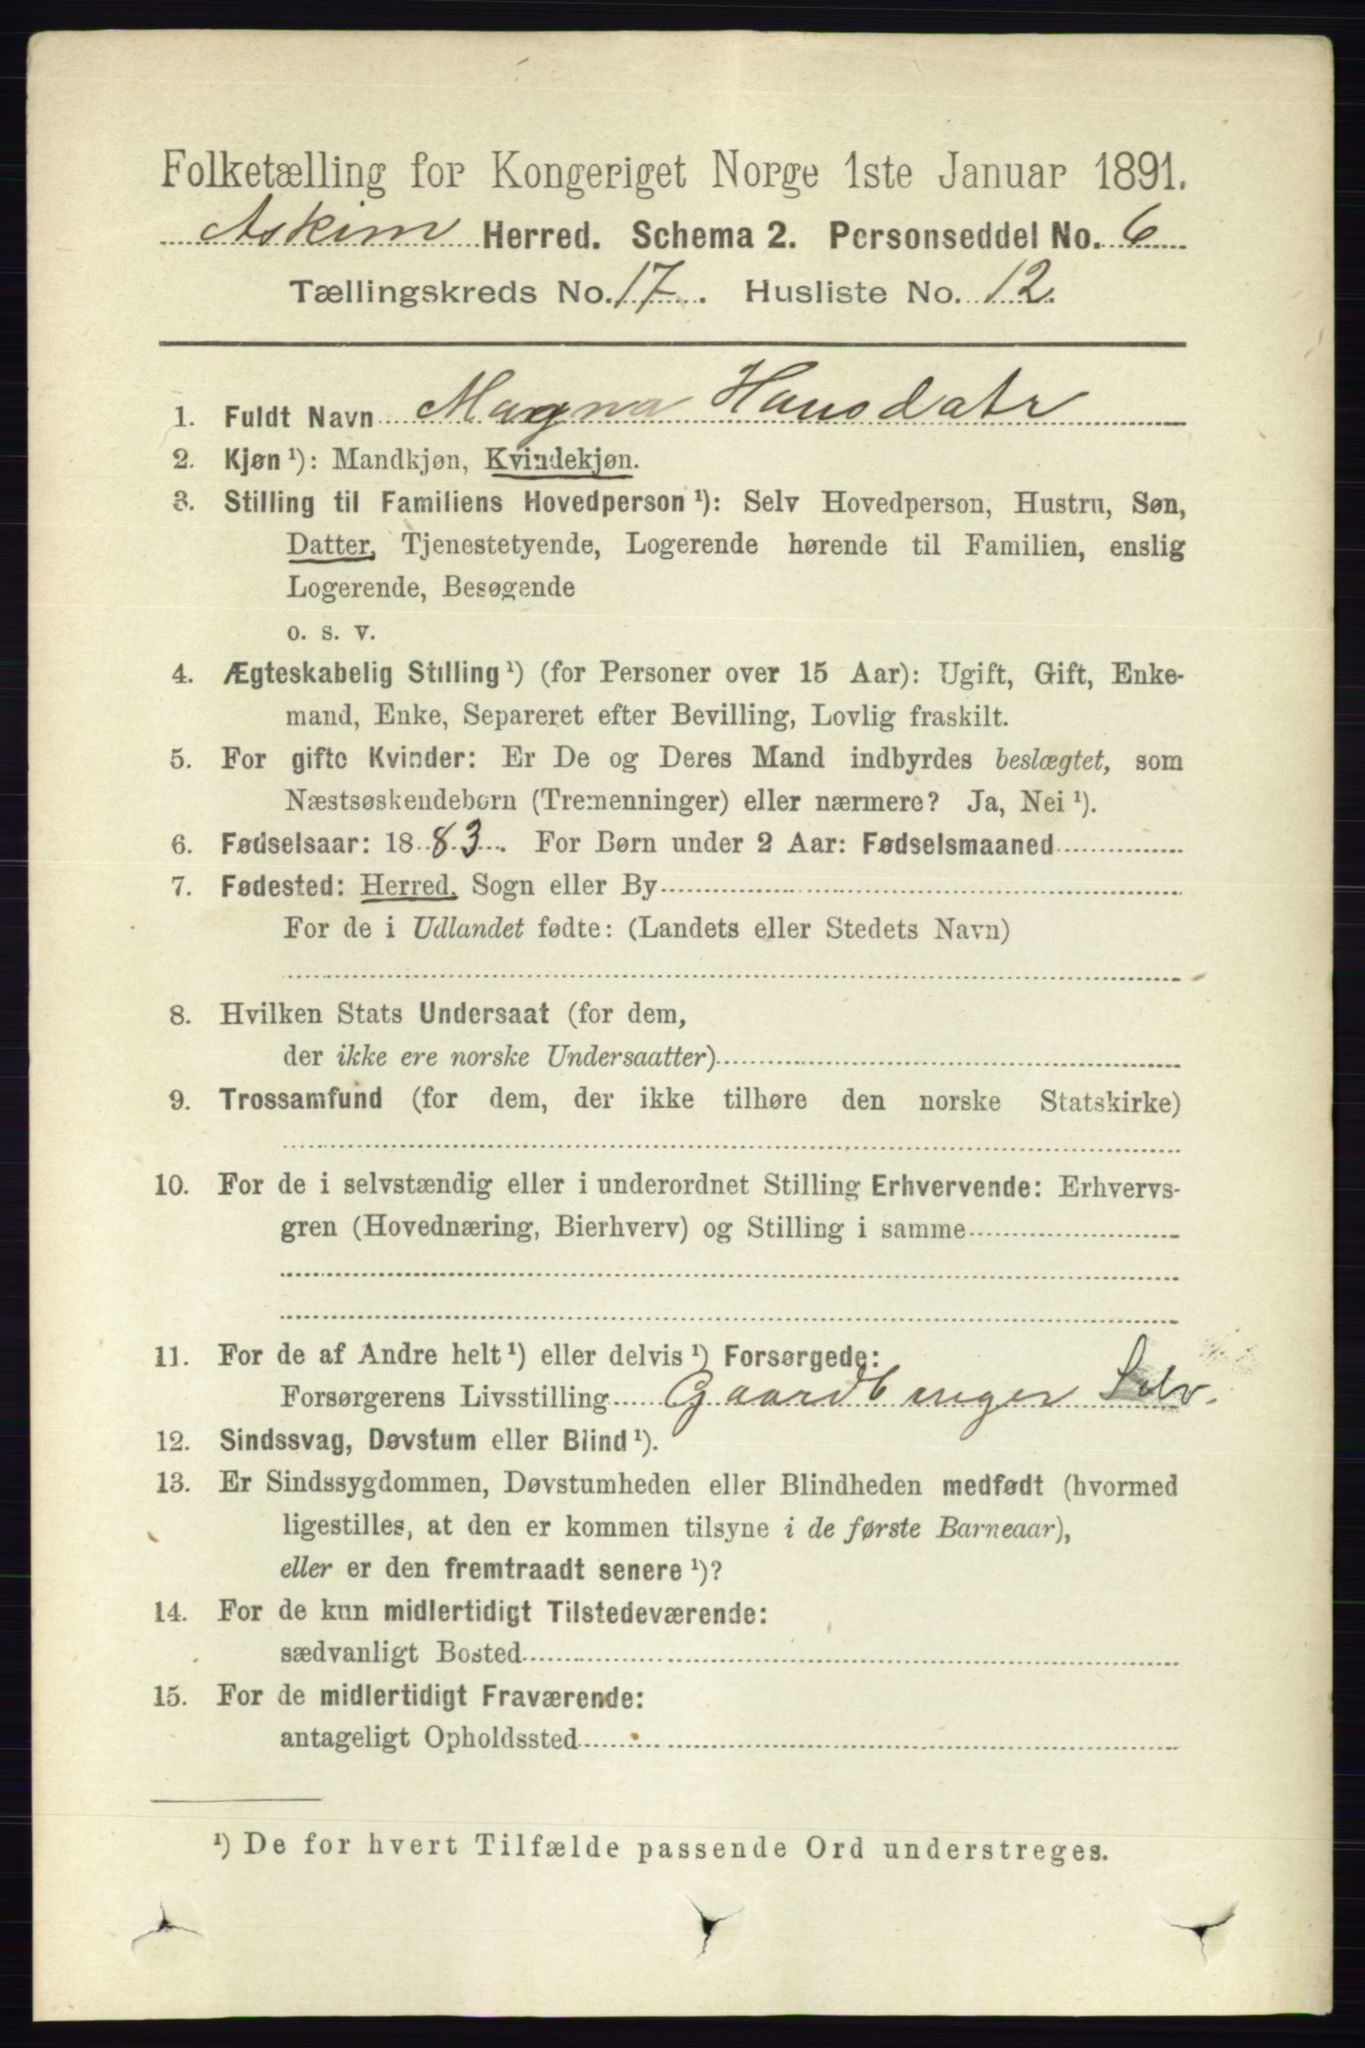 Folketælling for Kongeriget Norge 1ste Januar 1891.
Askim Herred. Schema 2. Personseddel No. 6
Tællingskreds No. 17. Husliste No. 12.
1. Fuldt Navn Magna Hansdatr
2. Kjøn ¹): Mandkjøn, Kvindekjøn.
3. Stilling til Familiens Hovedperson ¹): Selv Hovedperson, Hustru, Søn,
Datter, Tjenestetyende, Logerende hørende til Familien, enslig
Logerende, Besøgende
o. s. v.
4. Ægteskabelig Stilling ¹) (for Personer over 15 Aar): Ugift, Gift, Enke-
mand, Enke, Separeret efter Bevilling, Lovlig fraskilt.
5. For gifte Kvinder: Er De og Deres Mand indbyrdes beslægtet, som
Næstsøskendebørn (Tremenninger) eller nærmere? Ja, Nei ¹).
6. Fødselsaar: 1883. For Børn under 2 Aar: Fødselsmaaned
7. Fødested: Herred, Sogn eller By
For de i Udlandet fødte: (Landets eller Stedets Navn)
8. Hvilken Stats Undersaat (for dem,
der ikke ere norske Undersaatter)
9. Trossamfund (for dem, der ikke tilhøre den norske Statskirke)
10. For de i selvstændig eller i underordnet Stilling Erhvervende: Erhvervs-
gren (Hovednæring, Bierhverv) og Stilling i samme
11. For de af Andre helt ¹) eller delvis ¹) Forsørgede:
Forsørgerens Livsstilling Gaardbruger Selv.
12. Sindssvag, Døvstum eller Blind ¹).
13. Er Sindssygdommen, Døvstumheden eller Blindheden medfødt (hvormed
ligestilles, at den er kommen tilsyne i de første Barneaar),
eller er den fremtraadt senere ¹)?
14. For de kun midlertidigt Tilstedeværende:
sædvanligt Bosted
15. For de midlertidigt Fraværende:
antageligt Opholdssted
¹) De for hvert Tilfælde passende Ord understreges.